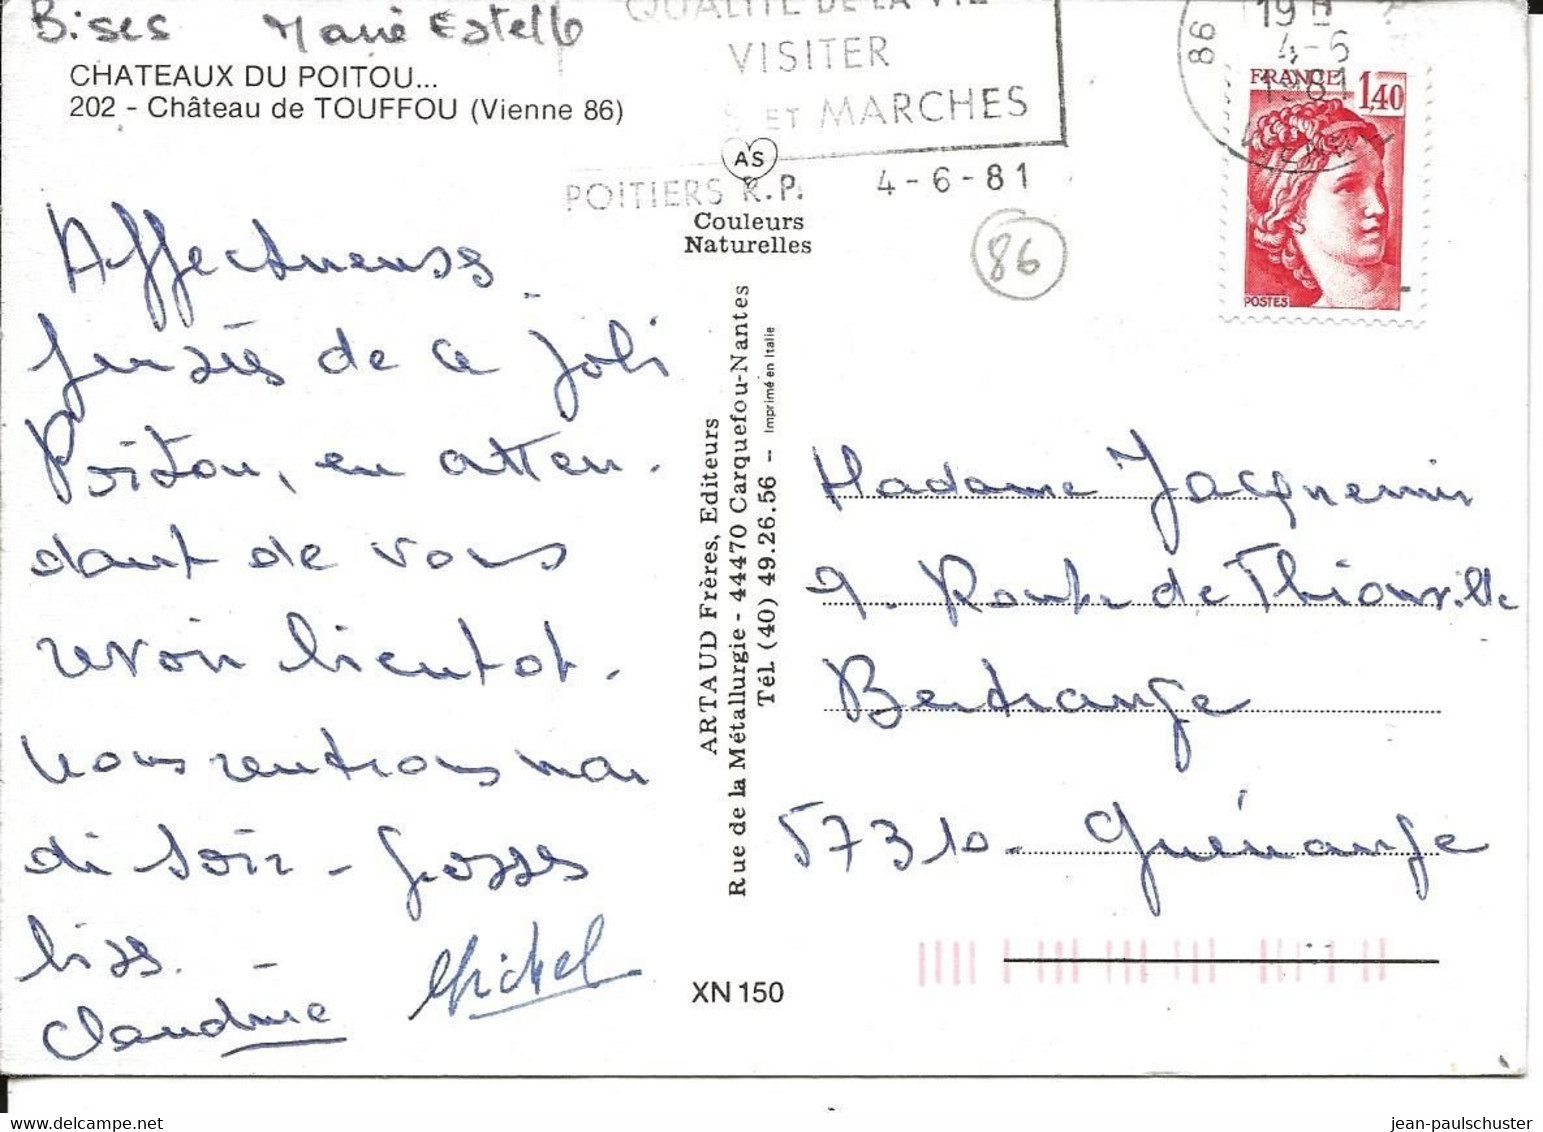 Bises Marie Estelle
CHATEAUX DU POITOU...
202 - Château de TOUFFOU (Vienne 86)
QUALITE DE LA VIE
VISITER
S ET MARCHES
POITIERS R.P. 4-6-81
86
19 H
4-6
1981
VIENNE
FRANCE 1,40
POSTES
AS
Couleurs
Naturelles
86
Affectueuses
pensées de ce joli
Poitou, en atten-
dant de vous
revoir bientot.
Nous rentrons mar
di soir - Grosses
bises. -
Claudine Michel
ARTAUD Frères, Editeurs
Rue de la Métallurgie - 44470 Carquefou-Nantes
Tél. (40) 49.26.56 - Imprimé en Italie
XN 150
Madame Jacquemin
9. Route de Thionville
Bertrange
57310 - Guénange
jean-paulschuster